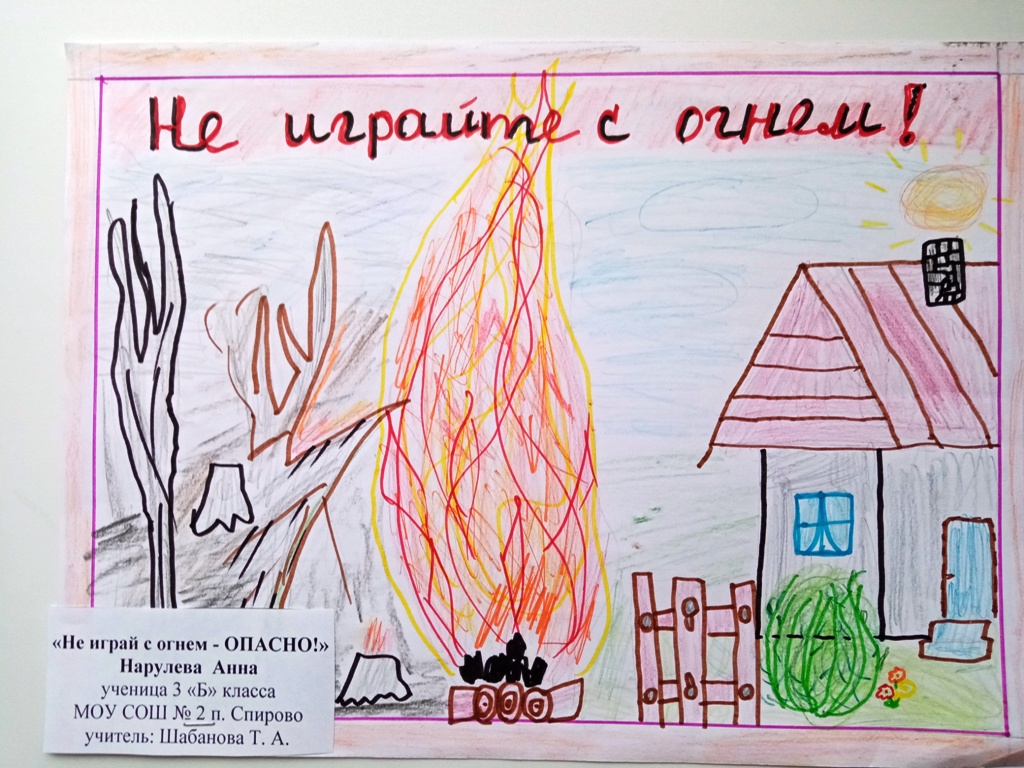 Не играйте с огнем!
«Не играй с огнем - ОПАСНО!»
Нарулева Анна
ученица 3 «Б» класса
МОУ СОШ № 2 п. Спирово
учитель: Шабанова Т. А.